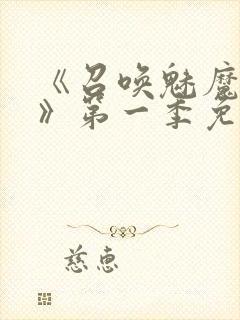 《召唤魅魔
》第一季免
慈惠